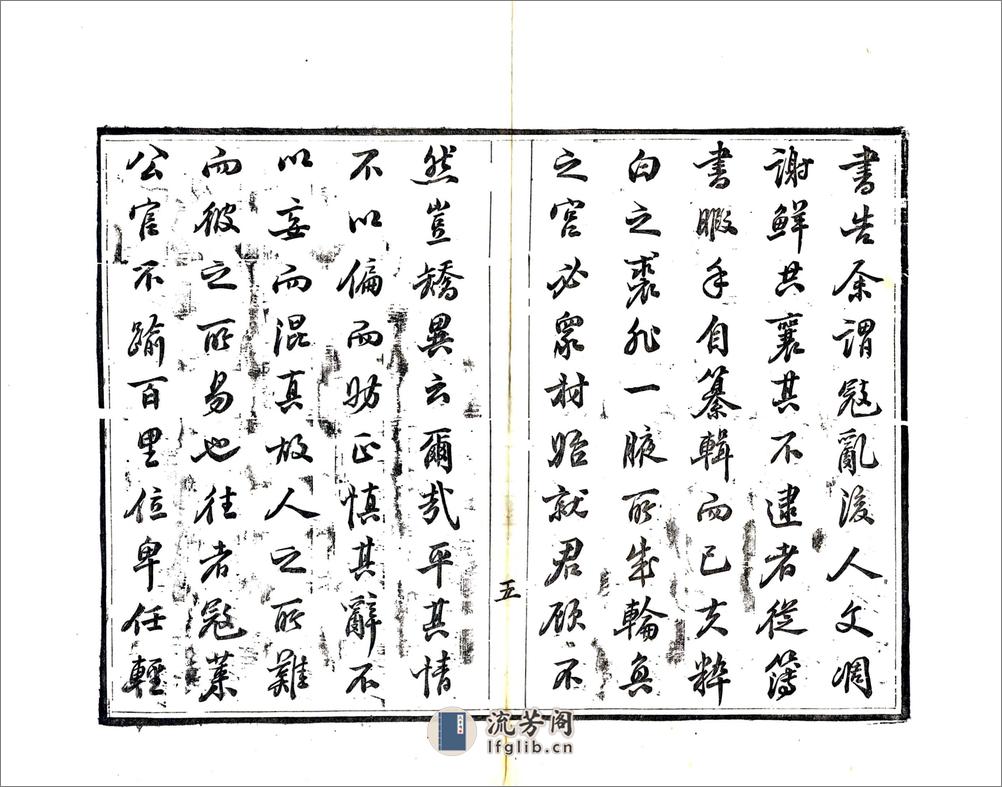 書告余謂寇亂後人文凋
謝鮮共襄其不逮者從簿
書暇手自纂輯而已夫粹
白之裘非一腋所成輪奐
之宮必眾材始就君顧不
五
然豈矯異云爾哉平其情
不以偏而妨正慎其辭不
以妄而混真故人之所難
而彼之所易也往者寇萊
公官不踰百里位卑任輕
流芳阁
lfglib.cn